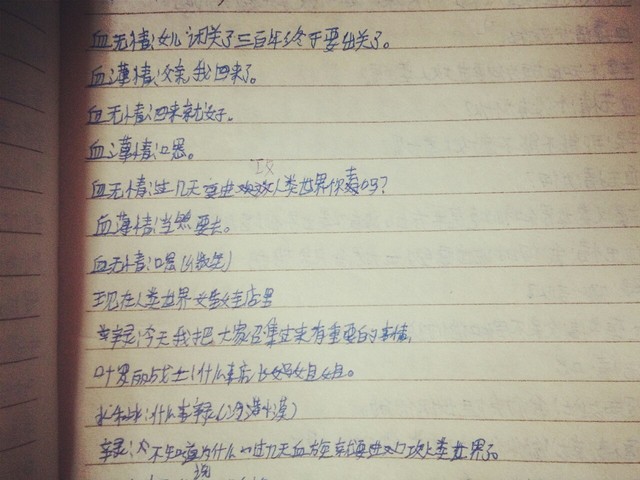 血无情:女儿闭关了三百年终于要出关了。
血薄情:父亲我回来了。
血无情:回来就好。
血薄情:口恩。
血无情:过几天要进攻人类世界你去吗?
血薄情:当然要去。
血无情:口恩(微笑)
现在人类世界娃娃店里
辛灵:今天我把大家召集过来有重要的事情,
叶罗丽战士:什么事店长妈姐姐。
水冰:什么事辛灵(冷漠)
辛灵:不知道为什么过几天血族就要进攻人类世界了。
说